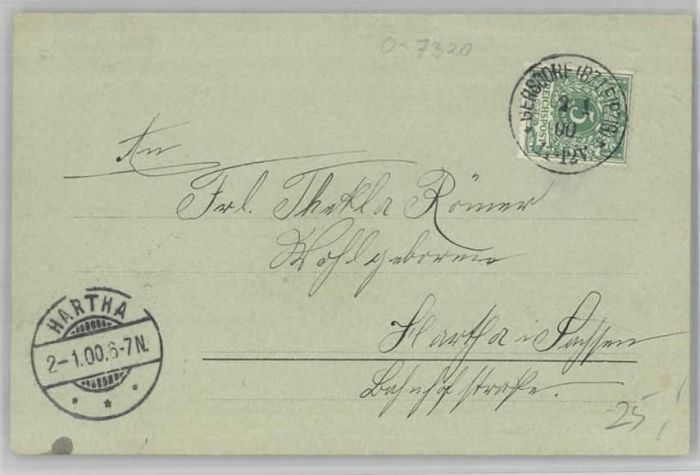 0-7320
GERSDORF (BZ. LEIPZIG)
2 1
00
-12V.
REICHSPOST
5
An
Frl. Thekla Römer
Wohlgeboren
Hartha i Sachsen
Bahnhofstraße.
HARTHA
2-1.00.6-7N.
25,